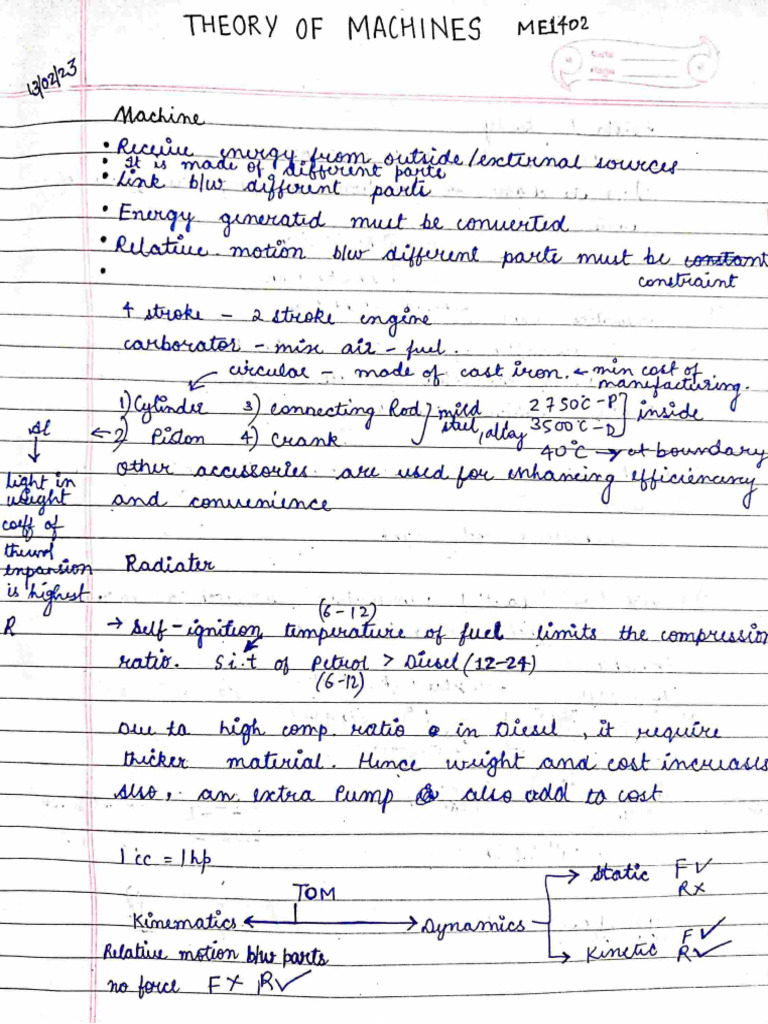 THEORY OF MACHINES ME1402
13/02/23
Machine
• Receive energy from outside/external sources
• It is made of different parts
• Link b/w different parts
• Energy generated must be converted
• Relative motion b/w different parts must be constant
constraint
•
4 stroke - 2 stroke engine
carborator - mix air - fuel.
circular - made of cast iron. ← min cost of
manufacturing.
1) Cylinder 3) connecting Rod } mild 2750°C-P ] inside
Al ← 2) Piston 4) Crank steel, alloy 3500°C-D
40°C → at boundary
other accessories are used for enhancing efficiencency
and convenience
light in
weight
coeff of
therml
expansion
is highest.
Radiater
R
(6-12)
→ Self-ignition temperature of fuel limits the compression
ratio. S.i.t of Petrol > Diesel (12-24)
(6-12)
Due to high comp. ratio in Diesel, it require
thicker material. Hence weight and cost increases
also, an extra pump also add to cost
1 cc = 1 hp
TOM
Kinematics ← → Dynamics
→ Static F✓
R×
→ Kinetic F✓
R✓
Relative motion b/w parts
no force F× R✓